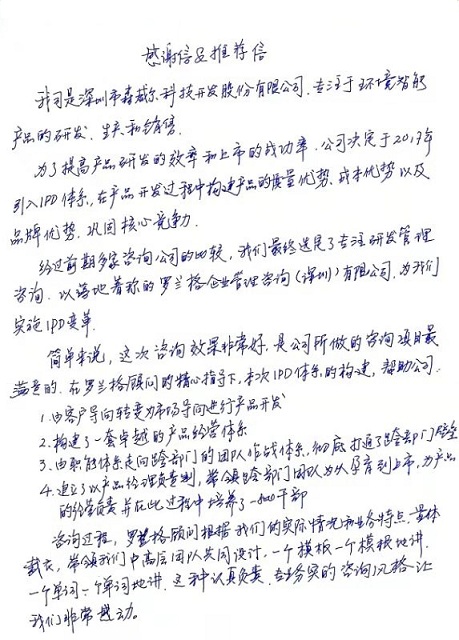 感谢信及推荐信
我司是深圳市森威尔科技开发股份有限公司、专注于环境智能
产品的研发、生产和销售。
为了提高产品研发的效率和上市的成功率、公司决定于2017年
引入IPD体系,在产品开发过程中构建产品的质量优势、成本优势以及
品牌优势、巩固核心竞争力。
经过前期多家咨询公司的比较,我们最终选定了专注研发管理
咨询、以落地著称的罗兰格企业管理咨询(深圳)有限公司,为我们
实施IPD变革.
简单来说,这次咨询效果非常好、是公司所做的咨询项目最
满意的、在罗兰格顾问的精心指导下,本次IPD体系的构建,帮助公司:
1.由客户导向转变为市场导向进行产品开发
2.构建了一套卓越的产品经营体系
3.由职能体系走向跨部门的团队作战体系,彻底打通了跨部门壁垒
4.建立了以产品经理负责制,带领跨部门团队为从孕育到上市,为产品
的经营负责并在此过程中培养了一批干部
咨询过程,罗兰格顾问根据我们的实际情况和业务特点、量体
裁衣,带领我们中高层团队共同设计、一个模板一个模板地讲、
一个单词一个单词地讲、这种认真负责、务实的咨询风格让
我们非常感动。